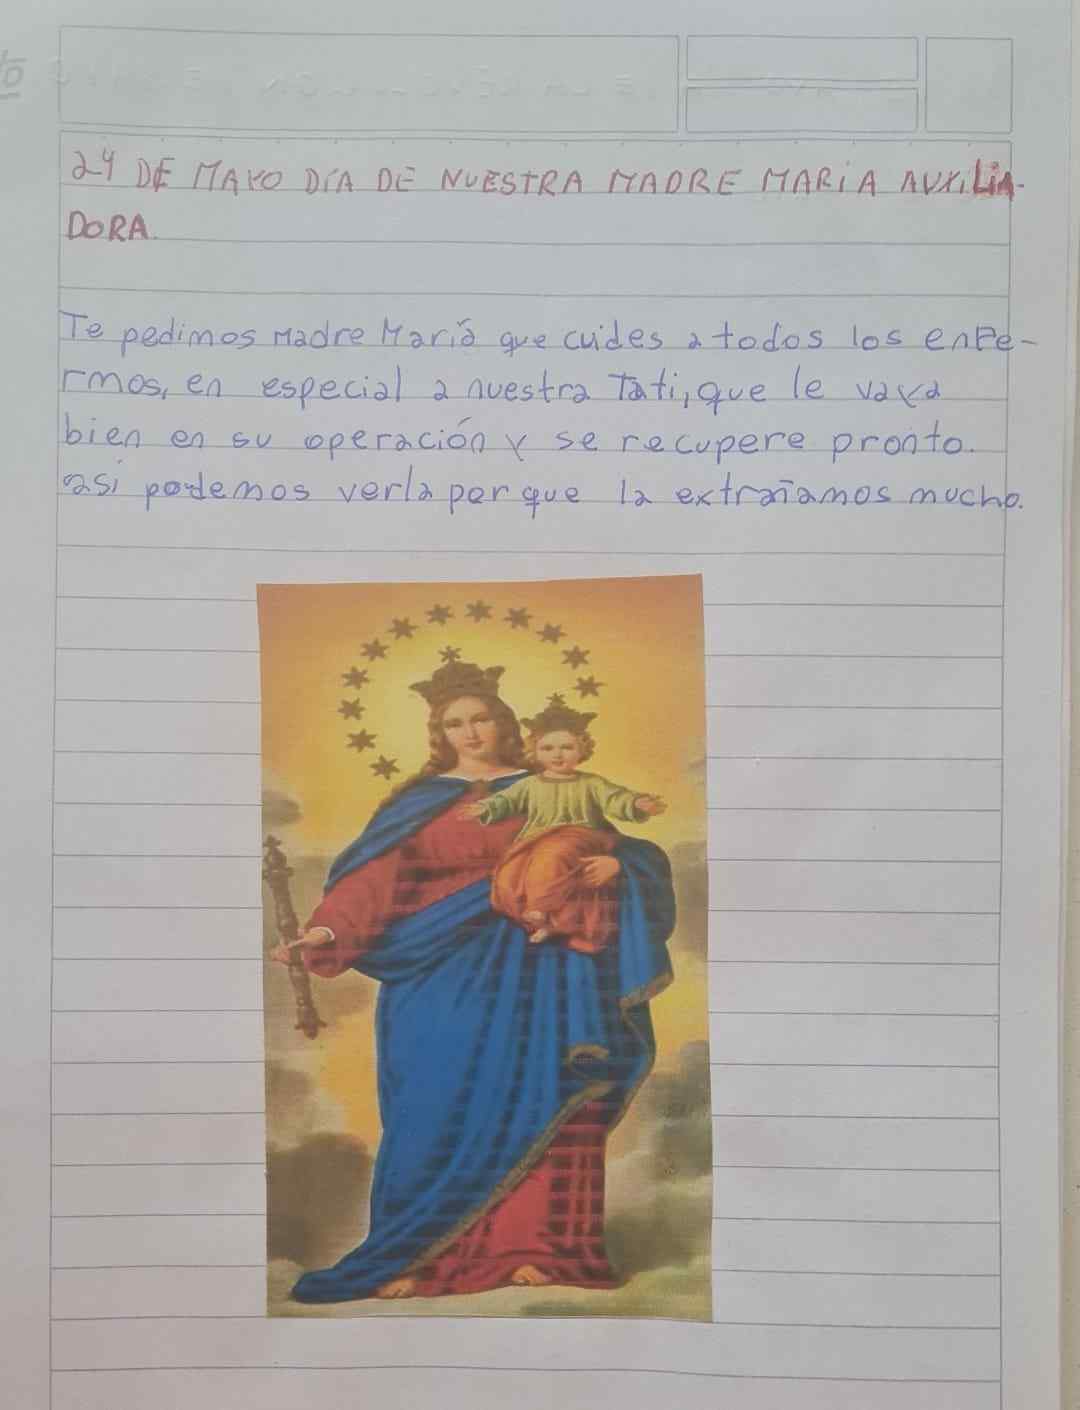 24 DE MAYO DÍA DE NUESTRA MADRE MARIA AUXILIA-
DORA.
Te pedimos Madre María que cuides a todos los enfe-
rmos, en especial a nuestra Tati, que le vaya
bien en su operación y se recupere pronto.
así podemos verla por que la extrañamos mucho.